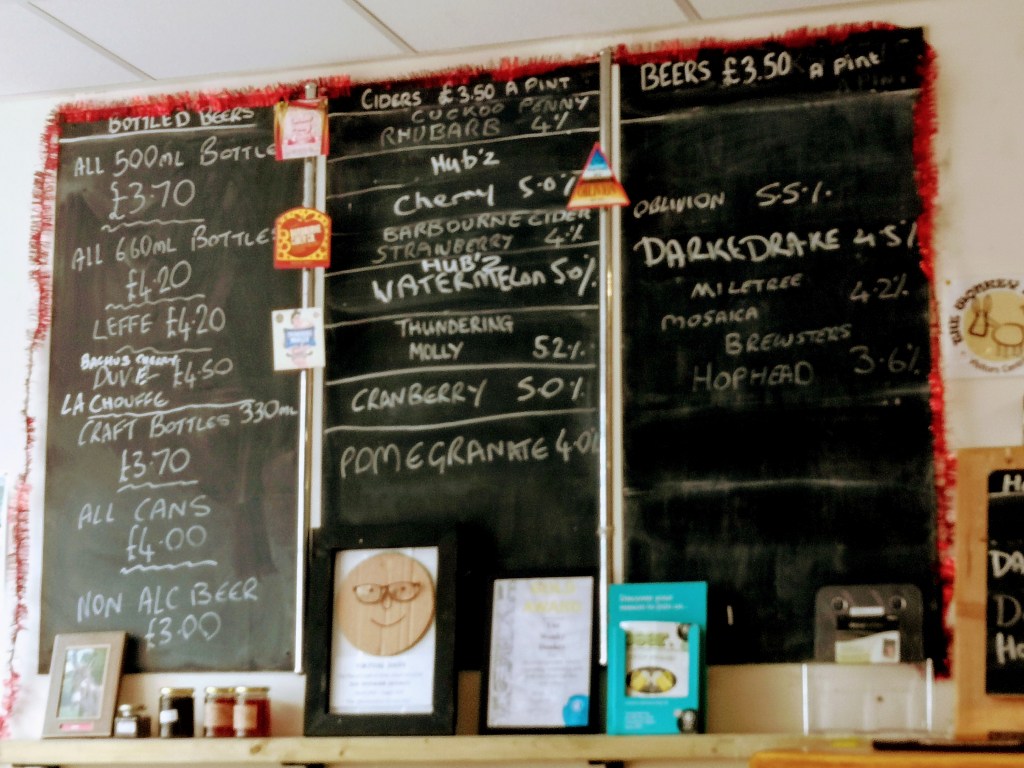 BOTTLED BEERS
ALL 500ML BOTTLE
£3.70
ALL 660ML BOTTLES
£4.20
LEFFE £4.20
BACHUS CHERRY
DUVE £4.50
LA CHOUFFE
CRAFT BOTTLES 330ML
£3.70
ALL CANS
£4.00
NON ALC BEER
£3.00
CIDERS £3.50 A PINT
CUCKOO PENNY
RHUBARB 4%
Hub'z
Cherry 5.0%
BARBOURNE CIDER
STRAWBERRY 4%
HUB'Z
WATERMELON 5.0%
THUNDERING
MOLLY 5.2%
CRANBERRY 5.0%
POMEGRANATE 4.0%
BEERS £3.50 A Pint
OBLIVION 5.5%
DARKEDRAKE 4.5%
MILETREE
MOSAICA 4.2%
BREWSTERS
HOPHEAD 3.6%
OBLIVION
THE MONKEY
Discover your
DA
D
Ho